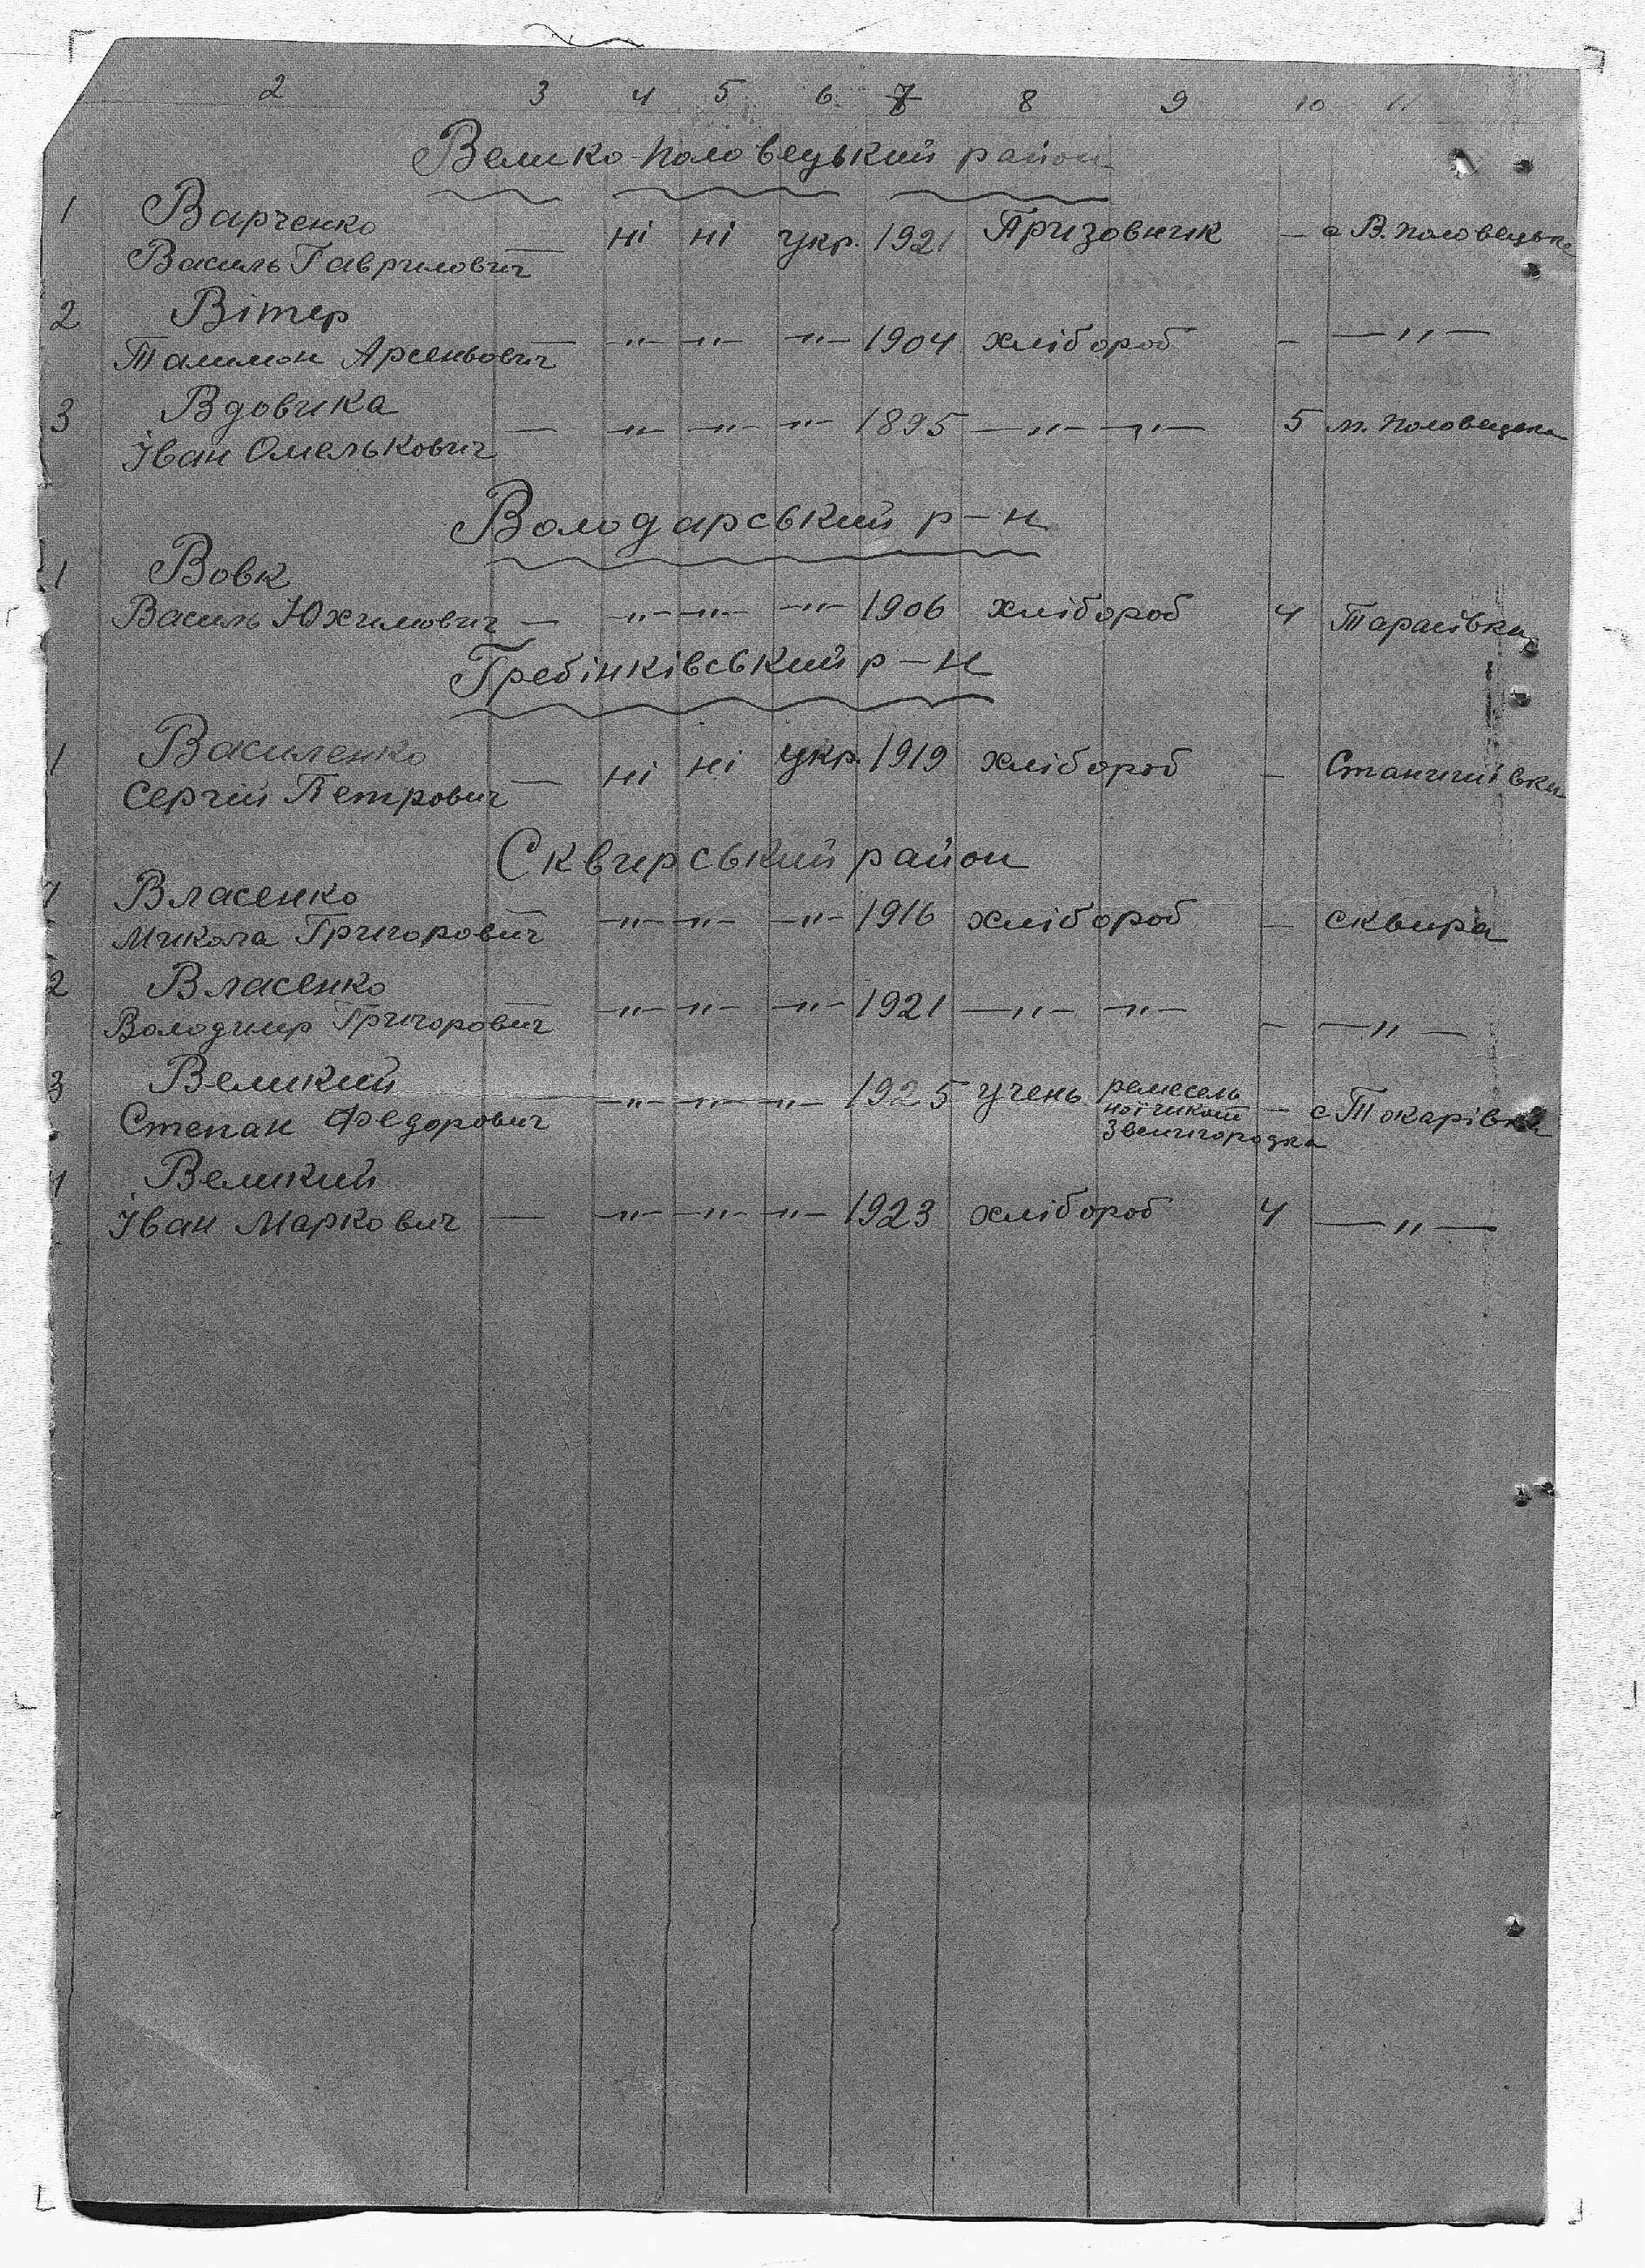 2 3 4 5 6 7 8 9 10 11
Велико-Половецький район
1 Варченко
Василь Гаврилович — ні ні укр. 1921 Призовник — с В. Половецьке
2 Вітер
Талимон Арсеньович — —"— —"— —"— 1904 хлібороб — —"—
3 Вдовика
Іван Омелькович — —"— —"— —"— 1895 —"— —"— 5 м. Половецьке
Володарський р-н
1 Вовк
Василь Юхимович — —"— —"— —"— 1906 хлібороб 4 Тарасівка
Гребінківський р-н
1 Василенко
Сергій Петрович — ні ні укр. 1919 хлібороб —
Сквирський район
1 Власенко
Микола Григорович — —"— —"— —"— 1916 хлібороб — Сквира
2 Власенко
Володимир Григорович — —"— —"— —"— 1921 —"— —"— — —"—
3 Великий
Степан Федорович —"— —"— —"— 1925 учень ремесель
ної школи — с Токарівка
Звенигородка
4 Великий
Іван Маркович — —"— —"— —"— 1923 хлібороб 4 —"—